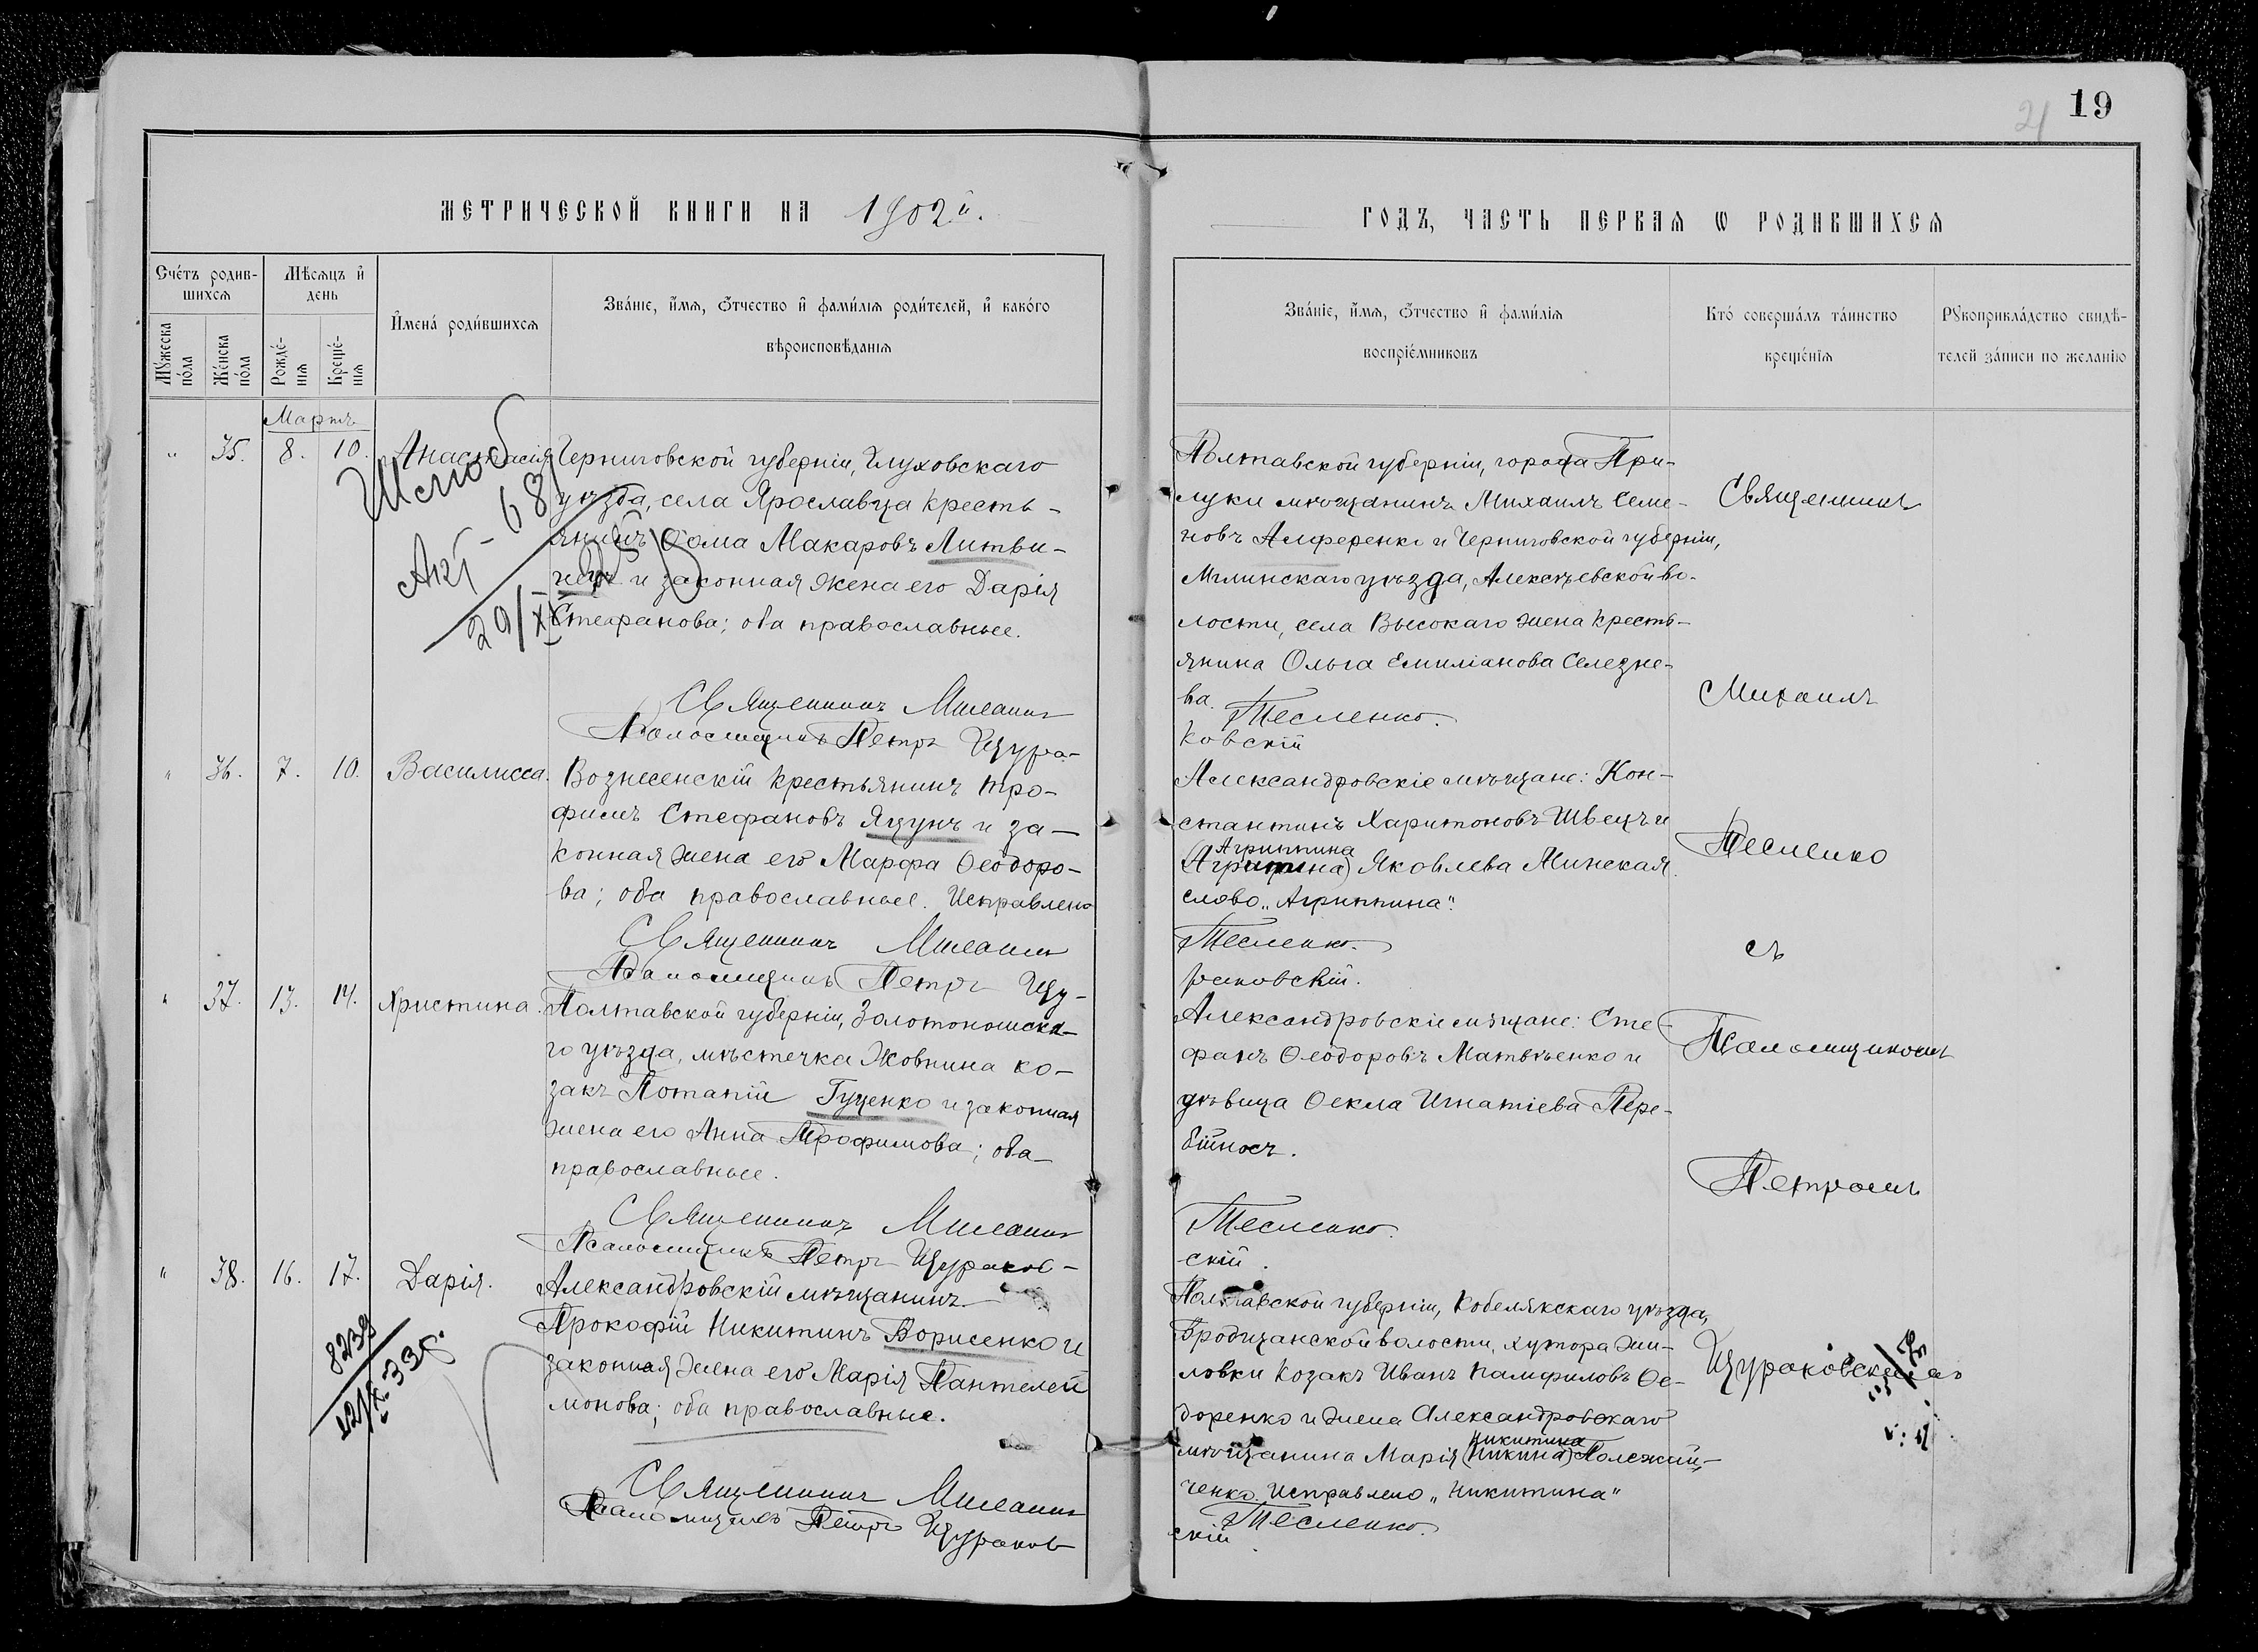 19
21
МЕТРИЧЕСКОЙ КНИГИ НА 1902й.
ГОДЪ, ЧАСТЬ ПЕРВАЯ Ѡ РОДИВШИХСЯ
Счетъ родив-
шихся
Мѣсяцъ и
день
Имена родившихся
Званіе, имя, отчество и фамилія родителей, и какого
вѣроисповѣданія
Мужеска
пола
Женска
пола
Рожде-
нія
Креще-
нія
Званіе, имя, отчество и фамилія
воспріемниковъ
Кто совершалъ таинство
крещенія
Рукоприкладство свидѣ-
телей записи по желанію
Мартъ
" 35. 8. 10. Анастасія
Черниговской губерніи, Глуховскаго
уѣзда, села Ярославца кресть-
янинъ Ѳома Макаровъ Литви-
и законная жена его Дарія
Стефанова; оба православные.
Священникъ Михаилъ
Псаломщикъ Петръ Щура-
Акт - 68
29/XI
Полтавской губерніи, города При-
луки мѣщанинъ Михаилъ Семе-
новъ Алференко и Черниговской губерніи,
Мглинскаго уѣзда, Алексѣевской во-
лости, села Высокаго жена кресть-
янина Ольга Емиліанова Селезне-
ва.
Тесленко.
ковскій
" 36. 7. 10. Василисса.
Вознесенскій крестьянинъ Тро-
фимъ Стефановъ Яцунъ и за-
конная жена его Марѳа Ѳеодоро-
ва; оба православные. Исправлено
Священникъ Михаилъ
Псаломщикъ Петръ Щу-
Александровскіе мѣщане: Кон-
стантинъ Харитоновъ Швецъ и
Агриппина
Яковлева Минская.
слово „Агриппина".
Тесленко.
раковскій.
" 37. 13. 14. Христина.
Полтавской губерніи, Золотоношска-
го уѣзда, мѣстечка Жовнина ко-
закъ Потапій Гуценко и законная
жена его Анна Трофимова; оба
православные.
Священникъ Михаилъ
Псаломщикъ Петръ Щураков-
Александровскіе мѣщане: Сте-
фанъ Ѳеодоровъ Матвѣенко и
дѣвица Ѳекла Игнатіева Пере-
бійносъ.
Тесленко.
скій.
" 38. 16. 17. Дарія.
Александровскій мѣщанинъ
Прокофій Никитинъ Борисенко и
законная жена его Марія Пантелей
монова; оба православные.
Священникъ Михаилъ
Псаломщикъ Петръ Щураков
8239
Полтавской губерніи, Кобелякскаго уѣзда,
Бродщанской волости, хутора Жи-
ловки козакъ Иванъ Памфиловъ Ѳе-
доренко и жена Александровскаго
Никитина
мѣщанина Марія (Никина) Полежай-
ченко. Исправлено „Никитина"
Тесленко.
скій
Священникъ
Михаилъ
Тесленко
съ
Псаломщикомъ
Петромъ
Щураковскимъ